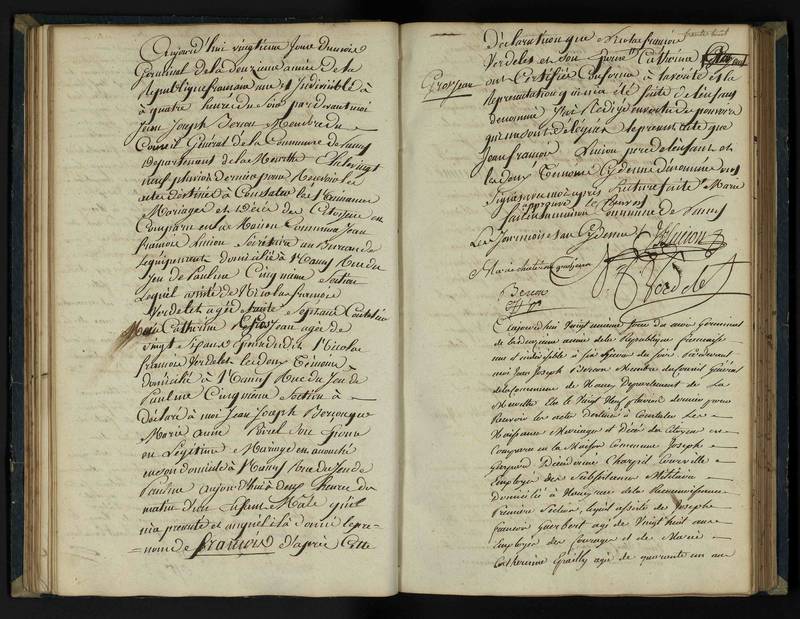 Aujourd'hui vingtieme Jour du mois
Germinal de la douzieme année de la
Republique francaise une et Indivisible à
à quatre heure de Soir par devant moi
Jean Joseph Beron Membre du
Conseil Général de la Commune de Nancy
Departement de la Meurthe Elu le vingt
neuf pluviose dernier pour Recevoir les
actes destinés à Constater les Naissances
Mariages et Décés des Citoyens en
Comparu en la Maison Commune Jean
francois Sécrétaire au Bureau de
Lequipements domicilié à Nancy Rue du
Jeu de Paulme Cinqmieme Section
Lequel assisté de Nicolas francois
Verdelet agé de trente
Marie Catherine Grosjean agée de
vingt Epouse dudit Nicolas
francois Verdelet les deux Témoins
domicilié à Nancy Rue du Jeu de
Paulme Cinqmieme Section à
Déclaré à moi Jean Joseph Beron que
Marie anne son Epouse
en Légitime Mariage est accouché
en son domicile à Nancy Rue du Jeu de
Paulme aujourd'hui à deux heure du
matin d'un Enfant Male qu'il
m'a présenté et auquel il à donné le pre-
=nom de françois d'après cette
trente huit
Déclaration que Nicolas francois
Verdelet et son Epouse Catherine
Grosjean
ont Certifiée Conforme à la vérité et la
Représentation qui m'a été faite de l'enfant
denommé J'ai Rédigé en vertu des pouvoirs
qui me sont délégués le présent acte que
Jean francois pere de l'enfant et
les deux Témoins Cy denommé ont
Signé avec moi après Lecture faite Marie
approuvé
fait en la maison Commune de Nancy
Les Jour mois et an Cy dessus
Marie catherine Grosjean
Verdelet
Beron
Off. p.
Aujourd'hui Vingt unieme Jour du mois Germinal
de la douzieme année de la Republique francaise
une et indivisible à six heure du soir Pardevant
moi Jean Joseph Beron Membre du Conseil Général
de la Commune de Nancy Departement de La
Meurthe Elu le Vingt Neuf pluviose dernier pour
Recevoir les actes destinés à Constater Les
Naissances Mariages et Décés des Citoyens est
Comparu en la Maison Commune Joseph
Gaspard
Employé des Subsistances Militaire
domicilié à Nancy rue de la Reconnoissance
Premiere Section, Lequel assisté de Joseph
francois agé de Vingt huit ans
Employé des fourages et de Marie
Catherinne agée de quarante un ans